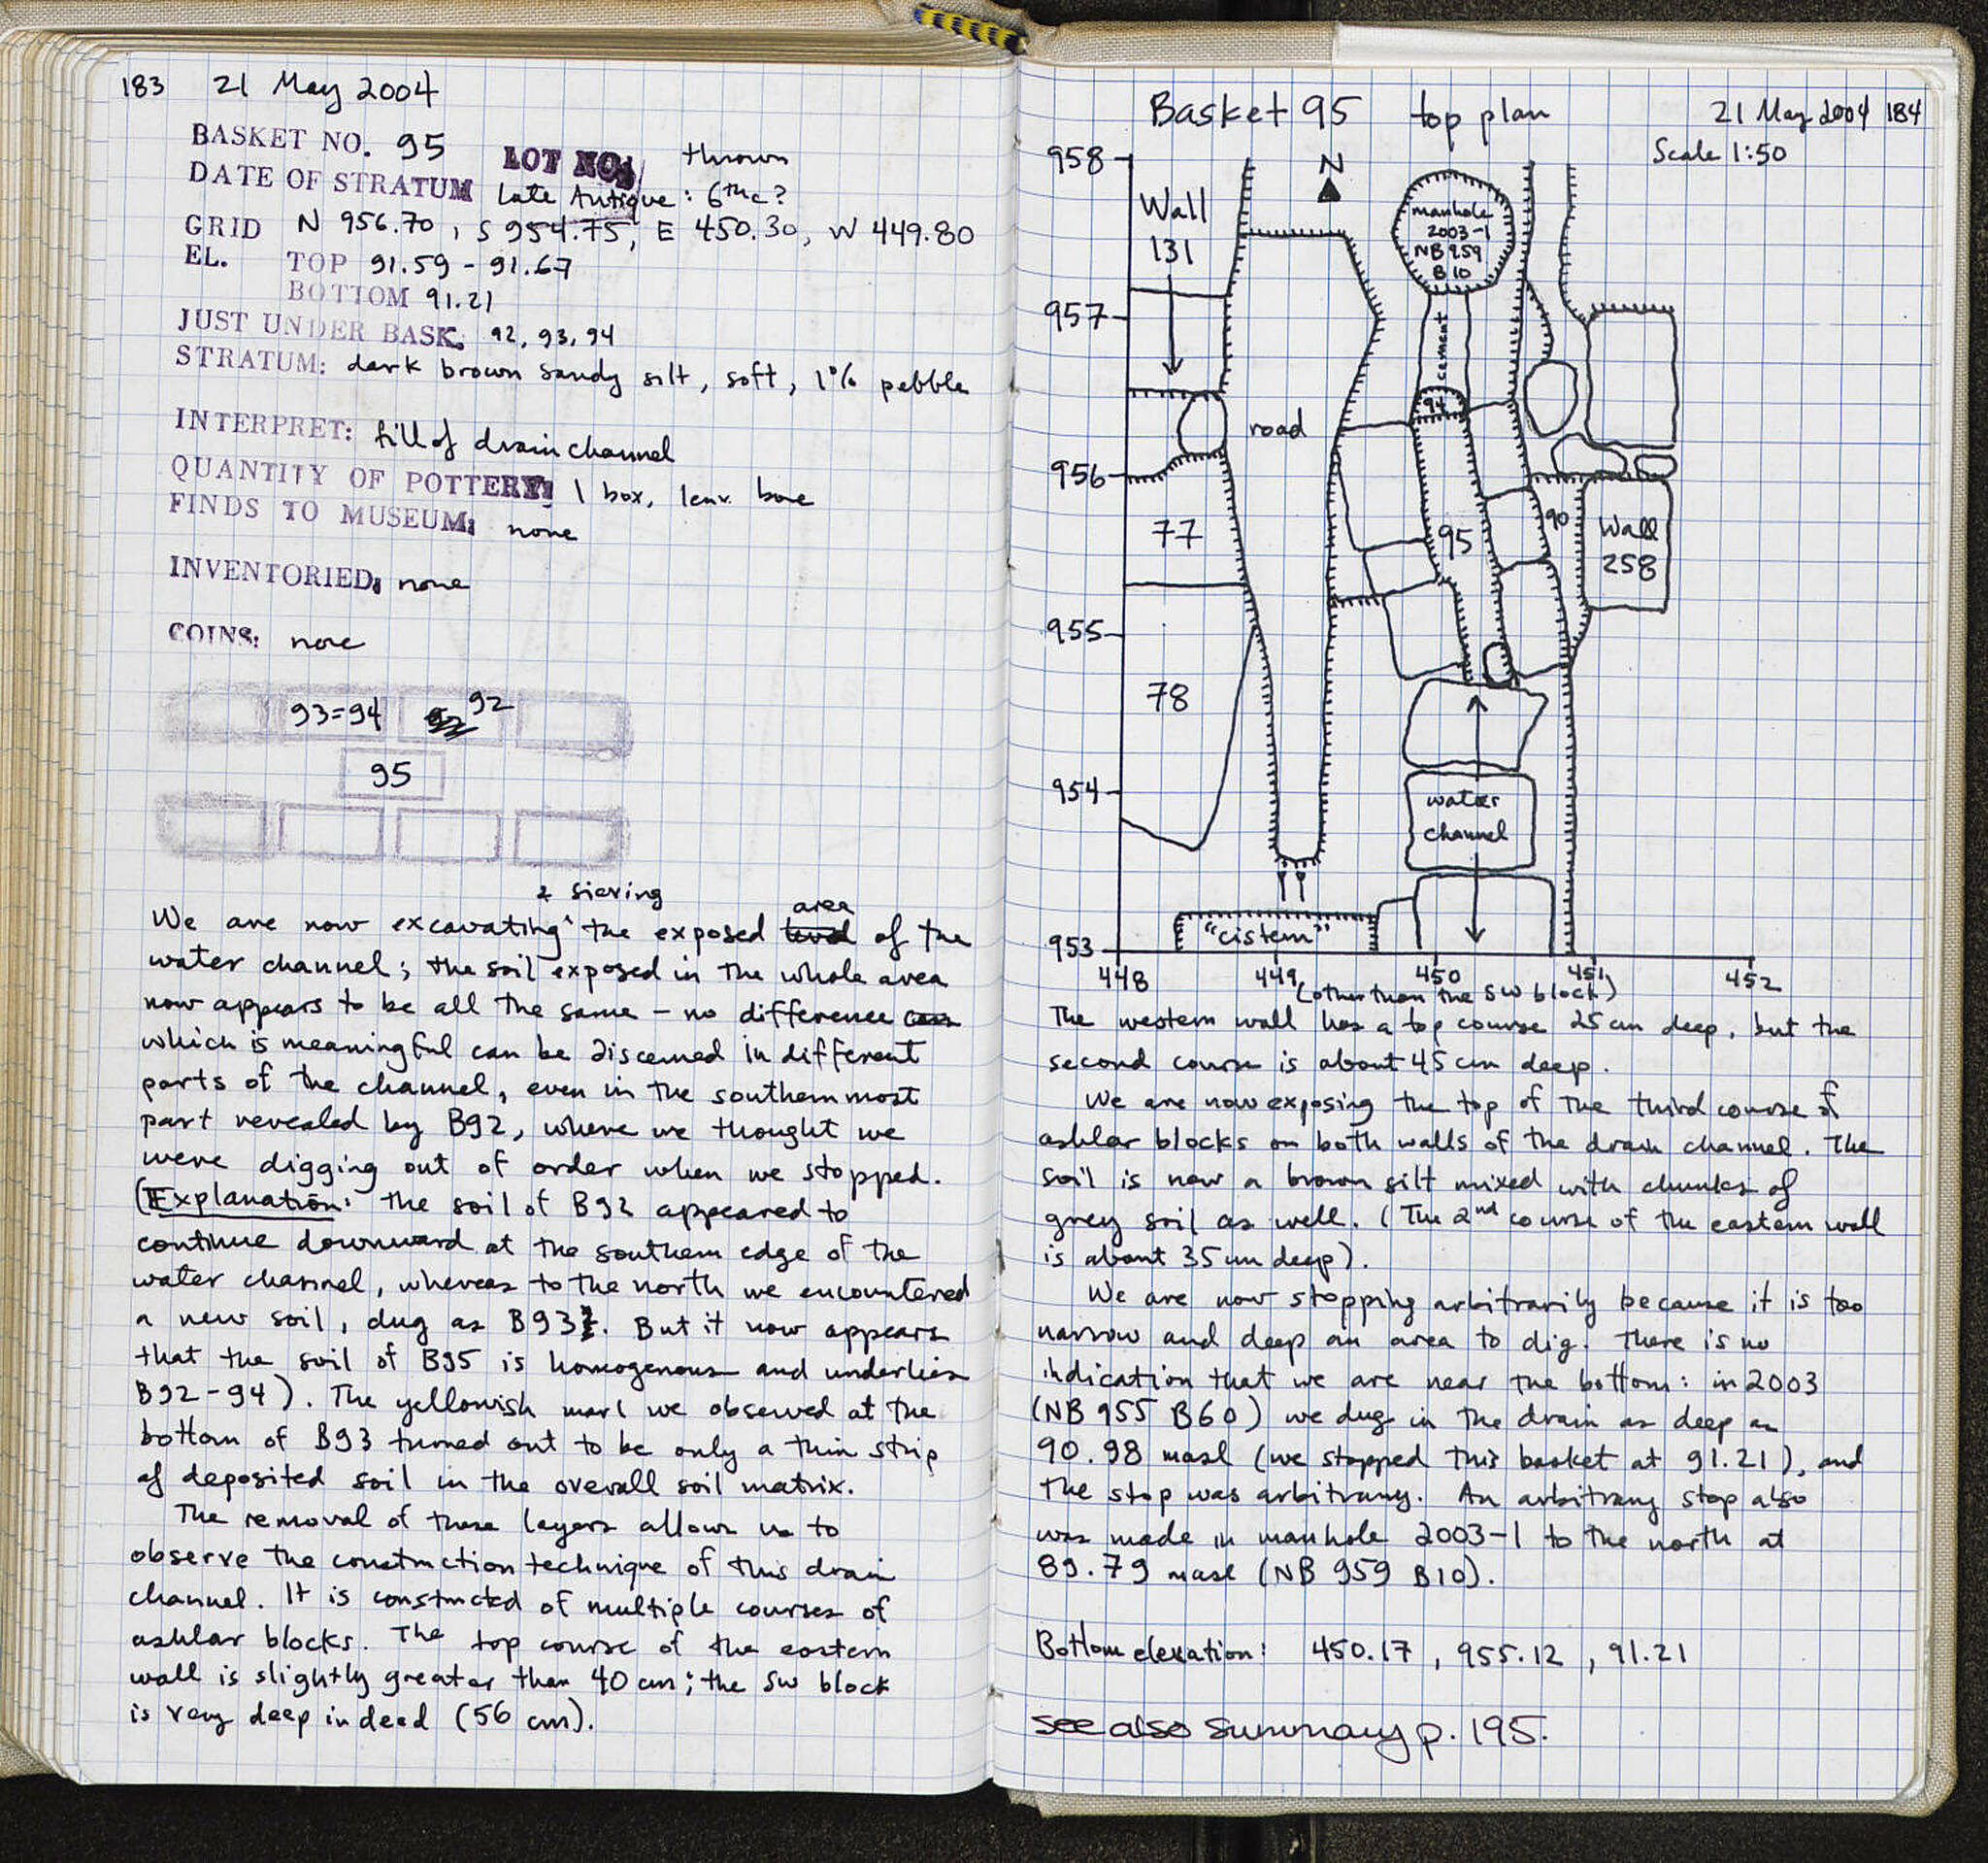 183 21 May 2004
BASKET NO. 95 LOT NO. thrown
DATE OF STRATUM Late Antique: 6th c?
GRID N 956.70, S 954.75, E 450.30, W 449.80
EL. TOP 91.59 - 91.67
BOTTOM 91.21
JUST UNDER BASK. 92, 93, 94
STRATUM: dark brown sandy silt, soft, 1% pebble
INTERPRET: fill of drain channel
QUANTITY OF POTTERY: 1 box, 1 env. bone
FINDS TO MUSEUM: none
INVENTORIED: none
COINS: none
93=94 92
95
& sieving area
We are now excavating ^ the exposed level of the
water channel; the soil exposed in the whole area
now appears to be all the same - no difference can
which is meaningful can be discerned in different
parts of the channel, even in the southernmost
part revealed by B92, where we thought we
were digging out of order when we stopped.
(Explanation: the soil of B92 appeared to
continue downward at the southern edge of the
water channel, whereas to the north we encountered
a new soil, dug as B93. But it now appears
that the soil of B95 is homogenous and underlies
B92-94). The yellowish marl we observed at the
bottom of B93 turned out to be only a thin strip
of deposited soil in the overall soil matrix.
The removal of these layers allows us to
observe the construction technique of this drain
channel. It is constructed of multiple courses of
ashlar blocks. The top course of the eastern
wall is slightly greater than 40 cm; the SW block
is very deep indeed (56 cm).
Basket 95 top plan 21 May 2004 184
Scale 1:50
958
N
Wall
131
manhole
2003-1
NB 959
B 10
957
cement
94
road
956
77
95
90
Wall
258
955
78
954
water
channel
"cistern"
953
448 449 450 451 452
(other than the SW block)
The western wall has a top course 25 cm deep, but the
second course is about 45 cm deep.
We are now exposing the top of the third course of
ashlar blocks on both walls of the drain channel. The
soil is now a brown silt mixed with chunks of
grey soil as well. (The 2nd course of the eastern wall
is about 35 cm deep).
We are now stopping arbitrarily because it is too
narrow and deep an area to dig. There is no
indication that we are near the bottom: in 2003
(NB 955 B60) we dug in the drain as deep as
90.98 masl (we stopped this basket at 91.21), and
the stop was arbitrary. An arbitrary stop also
was made in manhole 2003-1 to the north at
89.79 masl (NB 959 B10).
Bottom elevation: 450.17, 955.12, 91.21
see also summary p. 195.